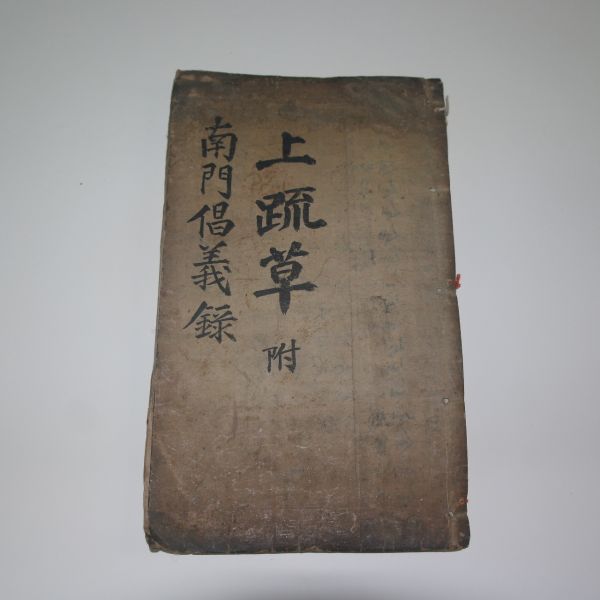 上疏草 附
南門倡義錄